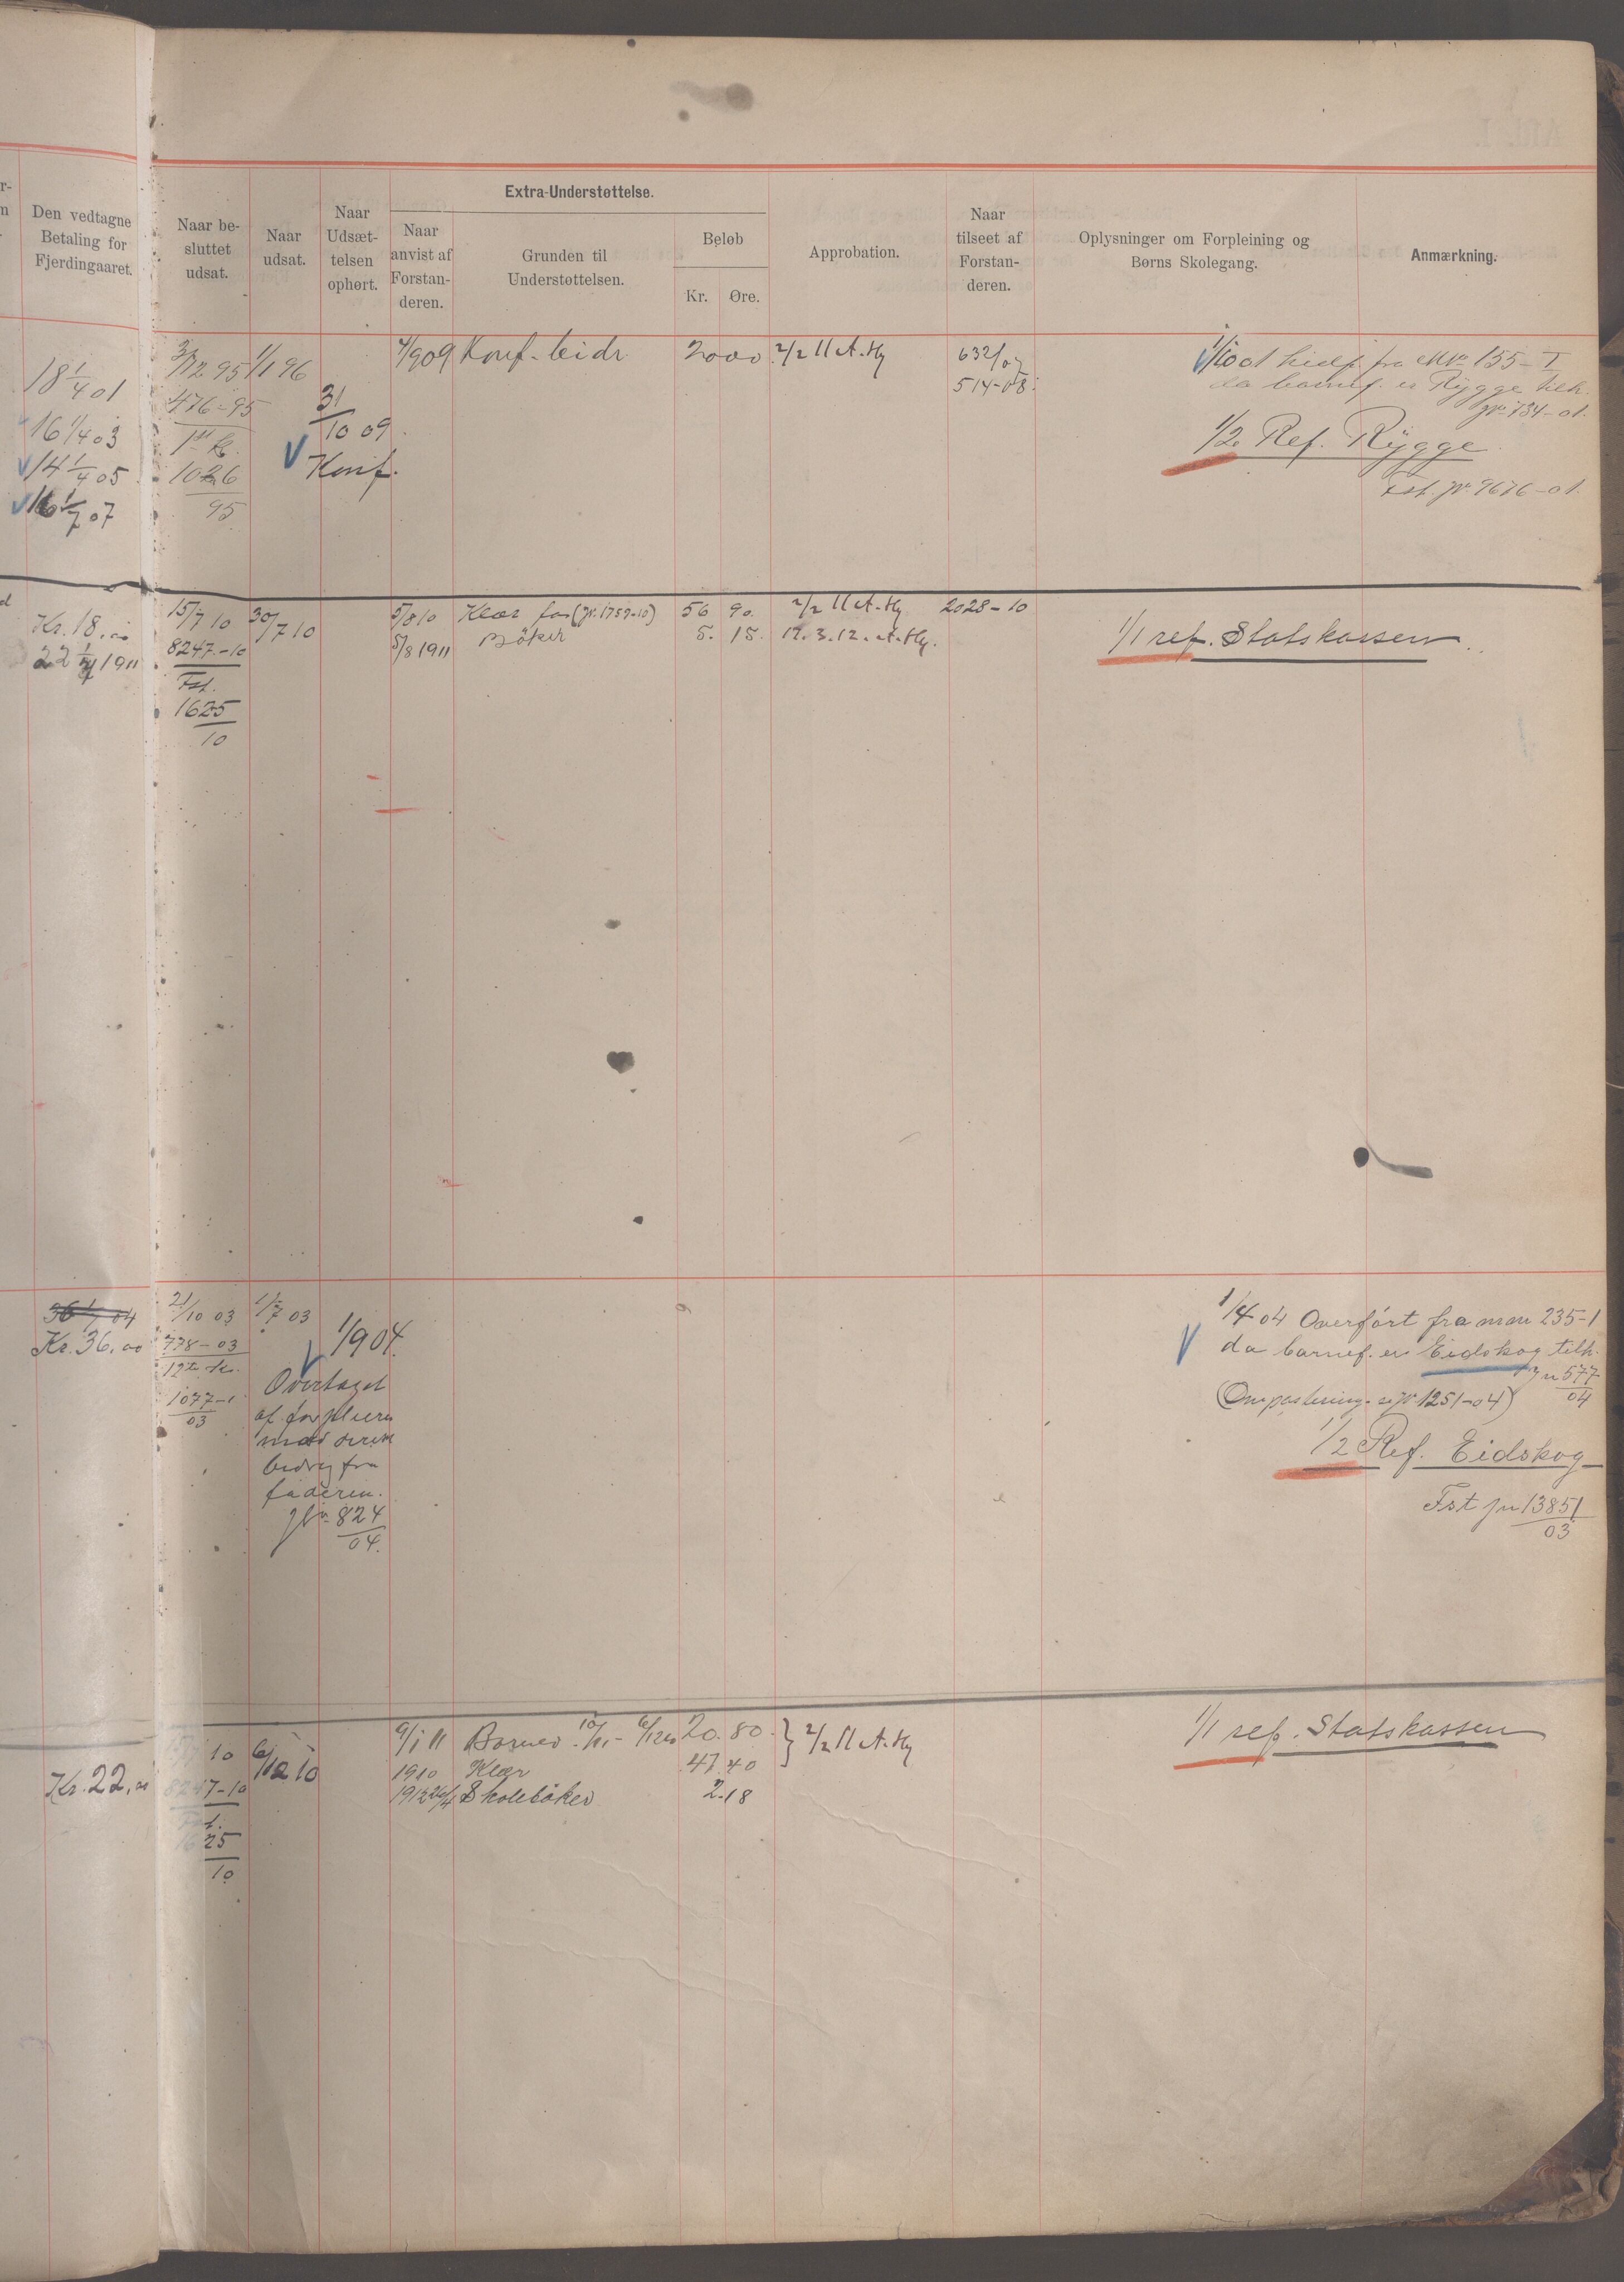 Den vedtagne
Betaling for
Fjerdingaaret.
Naar be-
sluttet
udsat.
Naar
udsat.
Naar
Udsæt-
telsen
ophørt.
Extra-Understøttelse.
Naar
anvist af
Forstan-
deren.
Grunden til
Understøttelsen.
Beløb
Kr.
Øre.
Approbation.
Naar
tilseet af
Forstan-
deren.
Oplysninger om Forpleining og
Børns Skolegang.
Anmærkning.
18 1/4 01
16 1/4 03
14 1/4 05
16 1/7 07
3/12 95
476-95
1026
95
1/1 96
31/10 09
Konf.
4/9 09 Konf. bidr 20 00 2/2 11 A.Hg
632/07
514-08
1/10 01 fra 155-I
da barnef. er Rygge tilh.
jr. 734-01.
1/2 Ref. Rygge
Fst. jr. 9676-01.
Kr. 18.
22 1911
15/7 10
8247-10
Fst.
1625
10
30/7 10
5/8 10 Klær (jr. 1759-10) 56 90. 2/2 11 A.Hg 2028-10
5/8 1911 Bøker 5. 15. 12.3.12. A.Hg.
1/1 ref. Statskassen
36 04
Kr. 36,00
21/10 03
778-03
1077
03
1/7 03
1/9 04.
Overtaget
af
fra
faderen.
824
04.
1/4 04 Overført fra 235-1
da barnef. er Eidskog tilh.
jn 577
04
1251-04)
1/2 Ref. Eidskog
Fst jn 13851
03
Kr. 22,00
10
8247-10
Fst.
1625
10
6/12 10
9/1 11 20.80 2/2 11 A.Hg
1910 Klær 47 40
1912 Skolebøker 2.18
1/1 ref. Statskassen